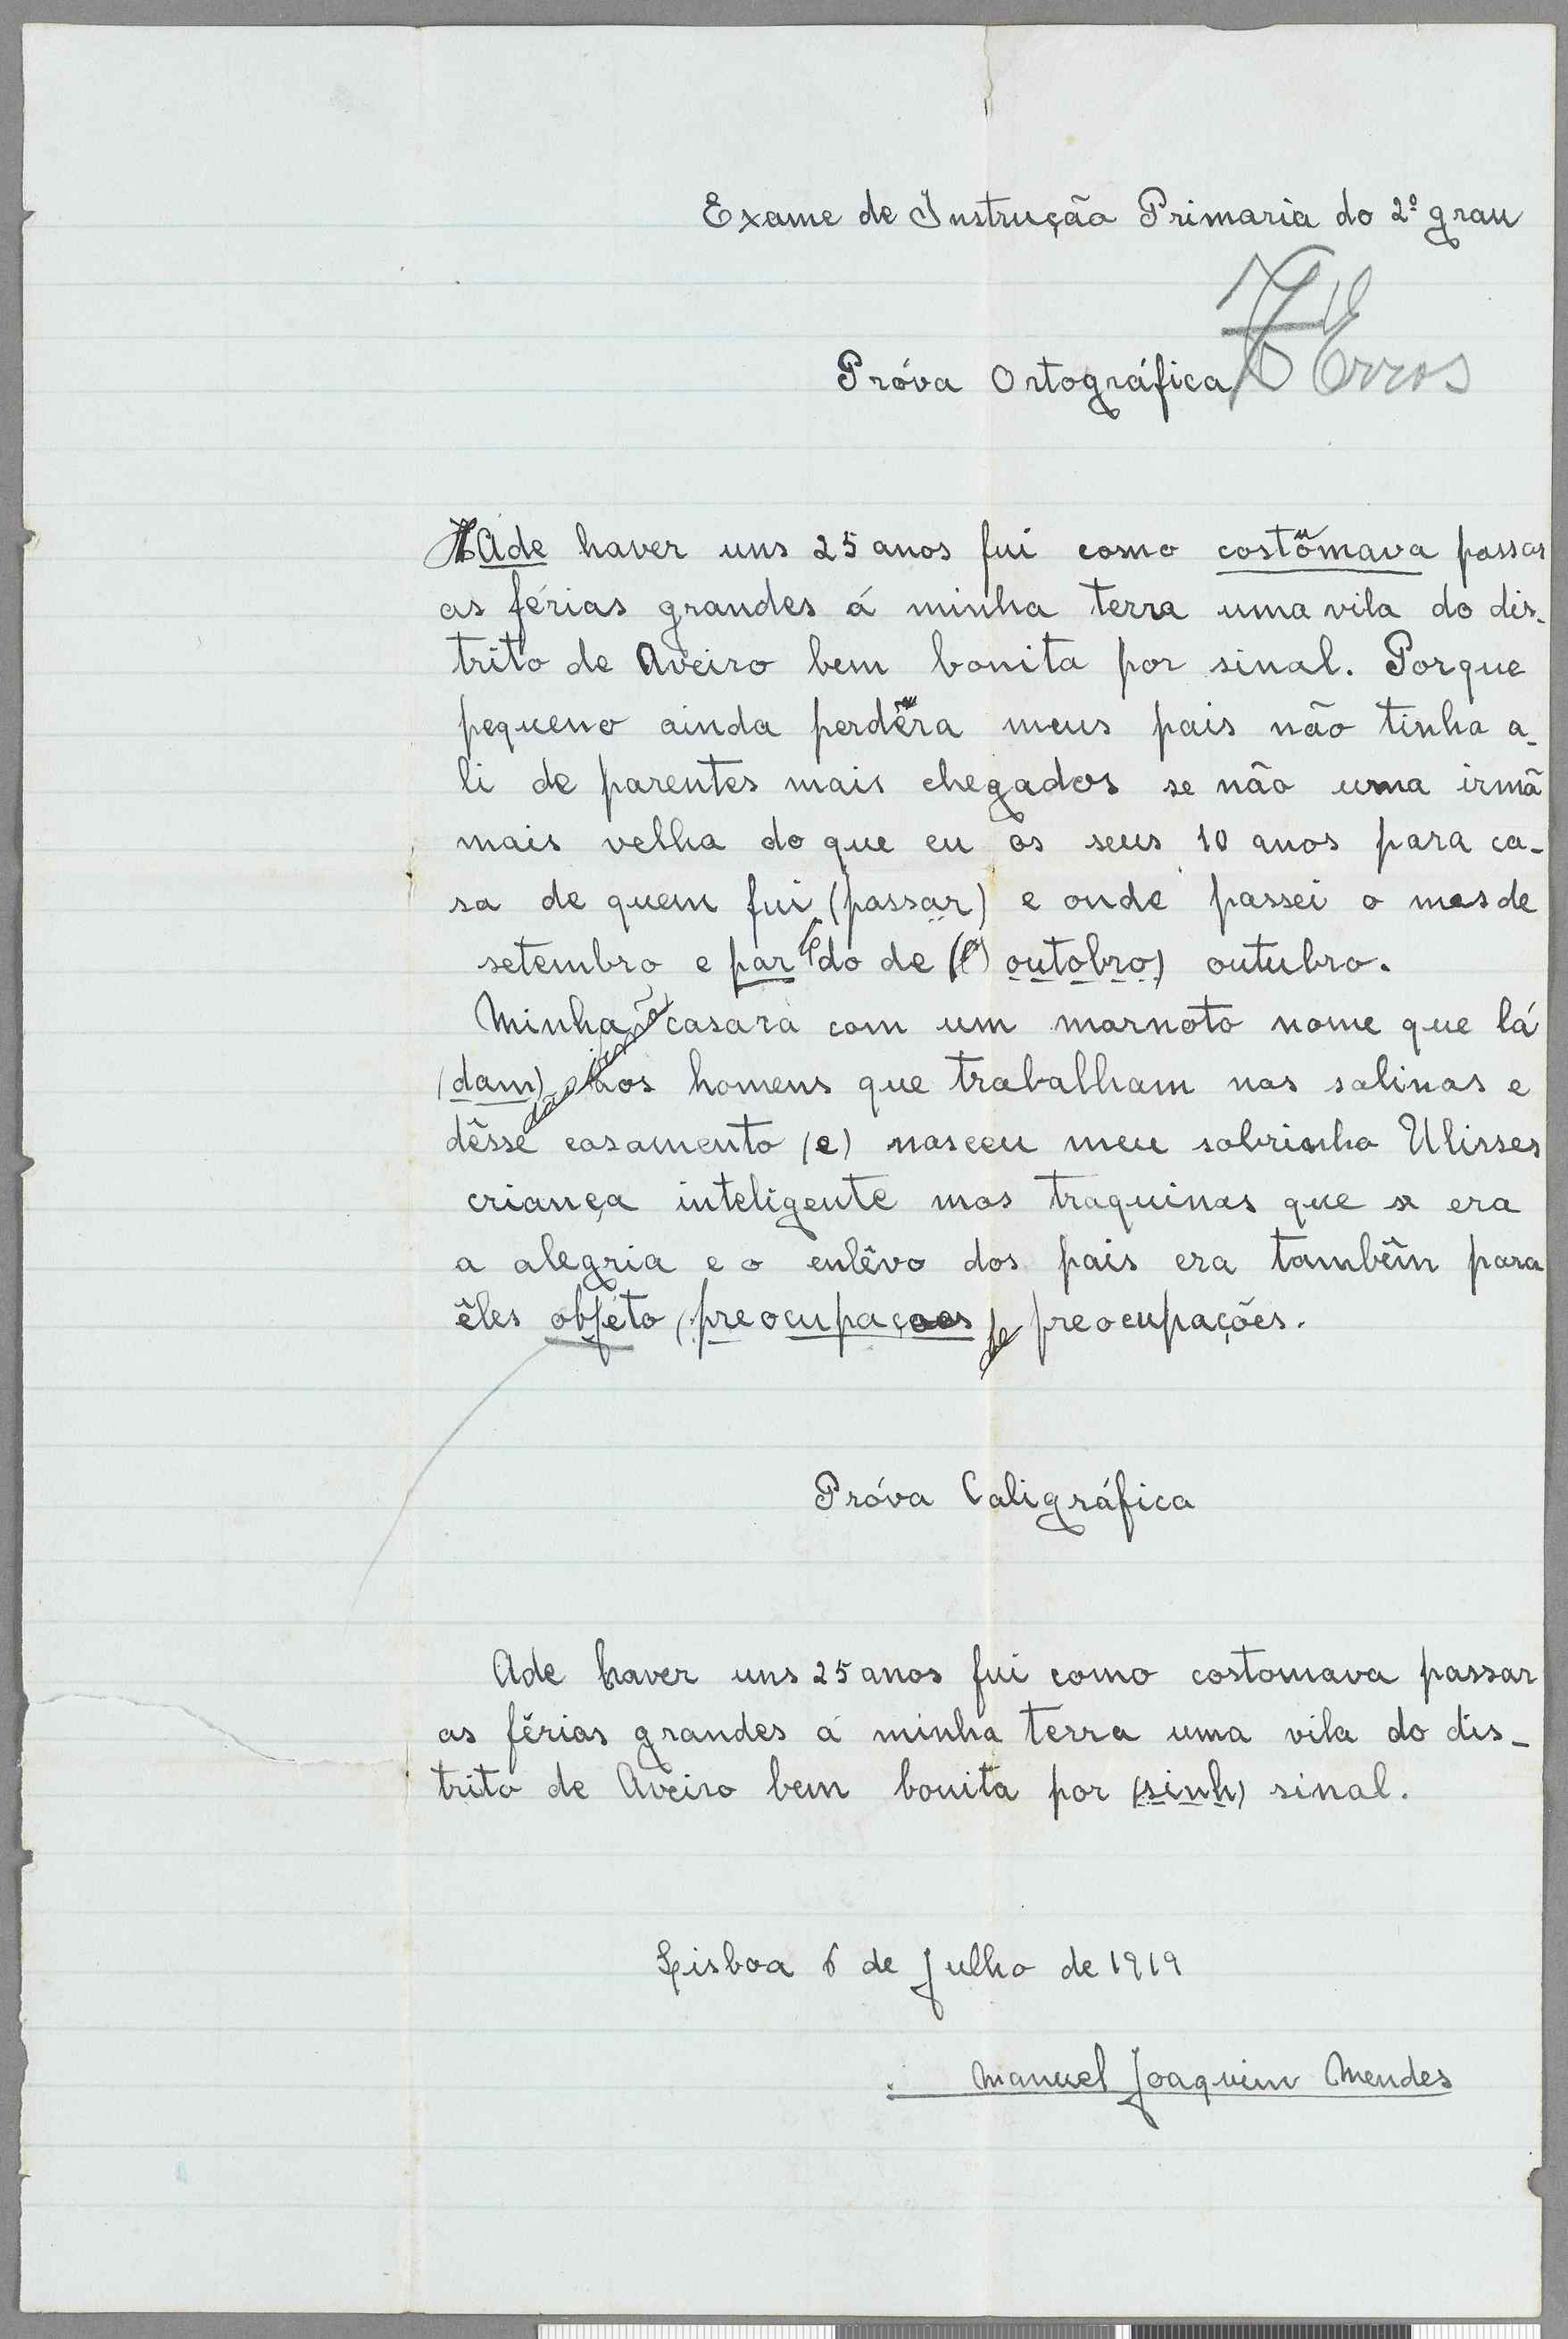 Exame de Instrução Primaria do 2º grau
7 Erros
Próva Ortográfica
Ade haver uns 25 anos fui como costômava passar
as férias grandes á minha terra uma vila do dis-
trito de Aveiro bem bonita por sinal. Porque
pequeno ainda perdêra meus pais não tinha a-
li de parentes mais chegados se não uma irmã
mais velha do que eu os seus 10 anos para ca-
sa de quem fui (passar) e onde passei o mes de
setembro e par do de outobro) outubro.
Minha irmã casara com um marnoto nome que lá
(dam) dão aos homens que trabalham nas salinas e
dêsse casamento (e) nasceu meu sobrinho Ulisses
criança inteligente mas traquinas que se era
a alegria e o enlêvo dos pais era tambêm para
êles objéto (preocupaçoes de preocupações.
Próva Caligráfica
Ade haver uns 25 anos fui como costomava passar
as férias grandes á minha terra uma vila do dis-
trito de Aveiro bem bonita por (sinh) sinal.
Lisboa 6 de Julho de 1919
Manuel Joaquim Mendes